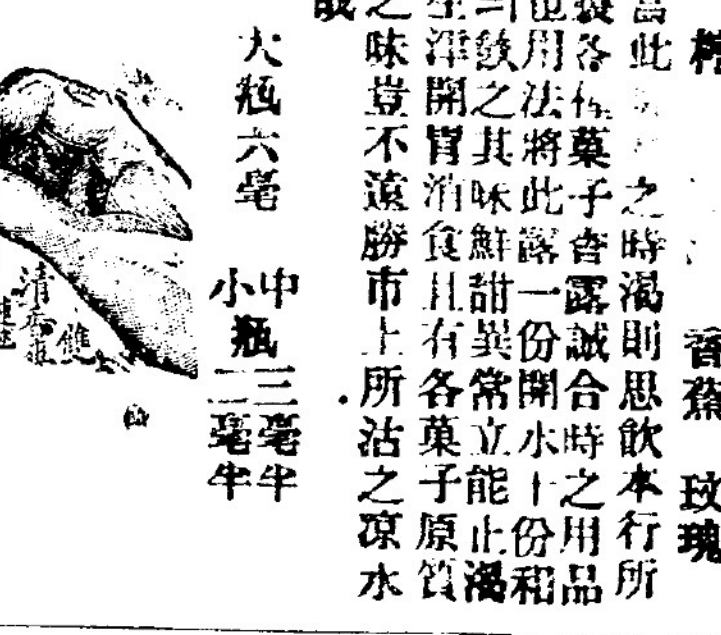 香蕉 玫瑰
當此之時渴則思飲本行所
製各種菓子香露誠合時之用品
也用法將此露一份開水十份和
勻飲之其味鮮甜異常立能止渴
生津開胃消食且有各菓子原質
之味豈不遠勝市上所沽之凉水
哉
大瓶六毫
中瓶三毫半
小瓶二毫半
清